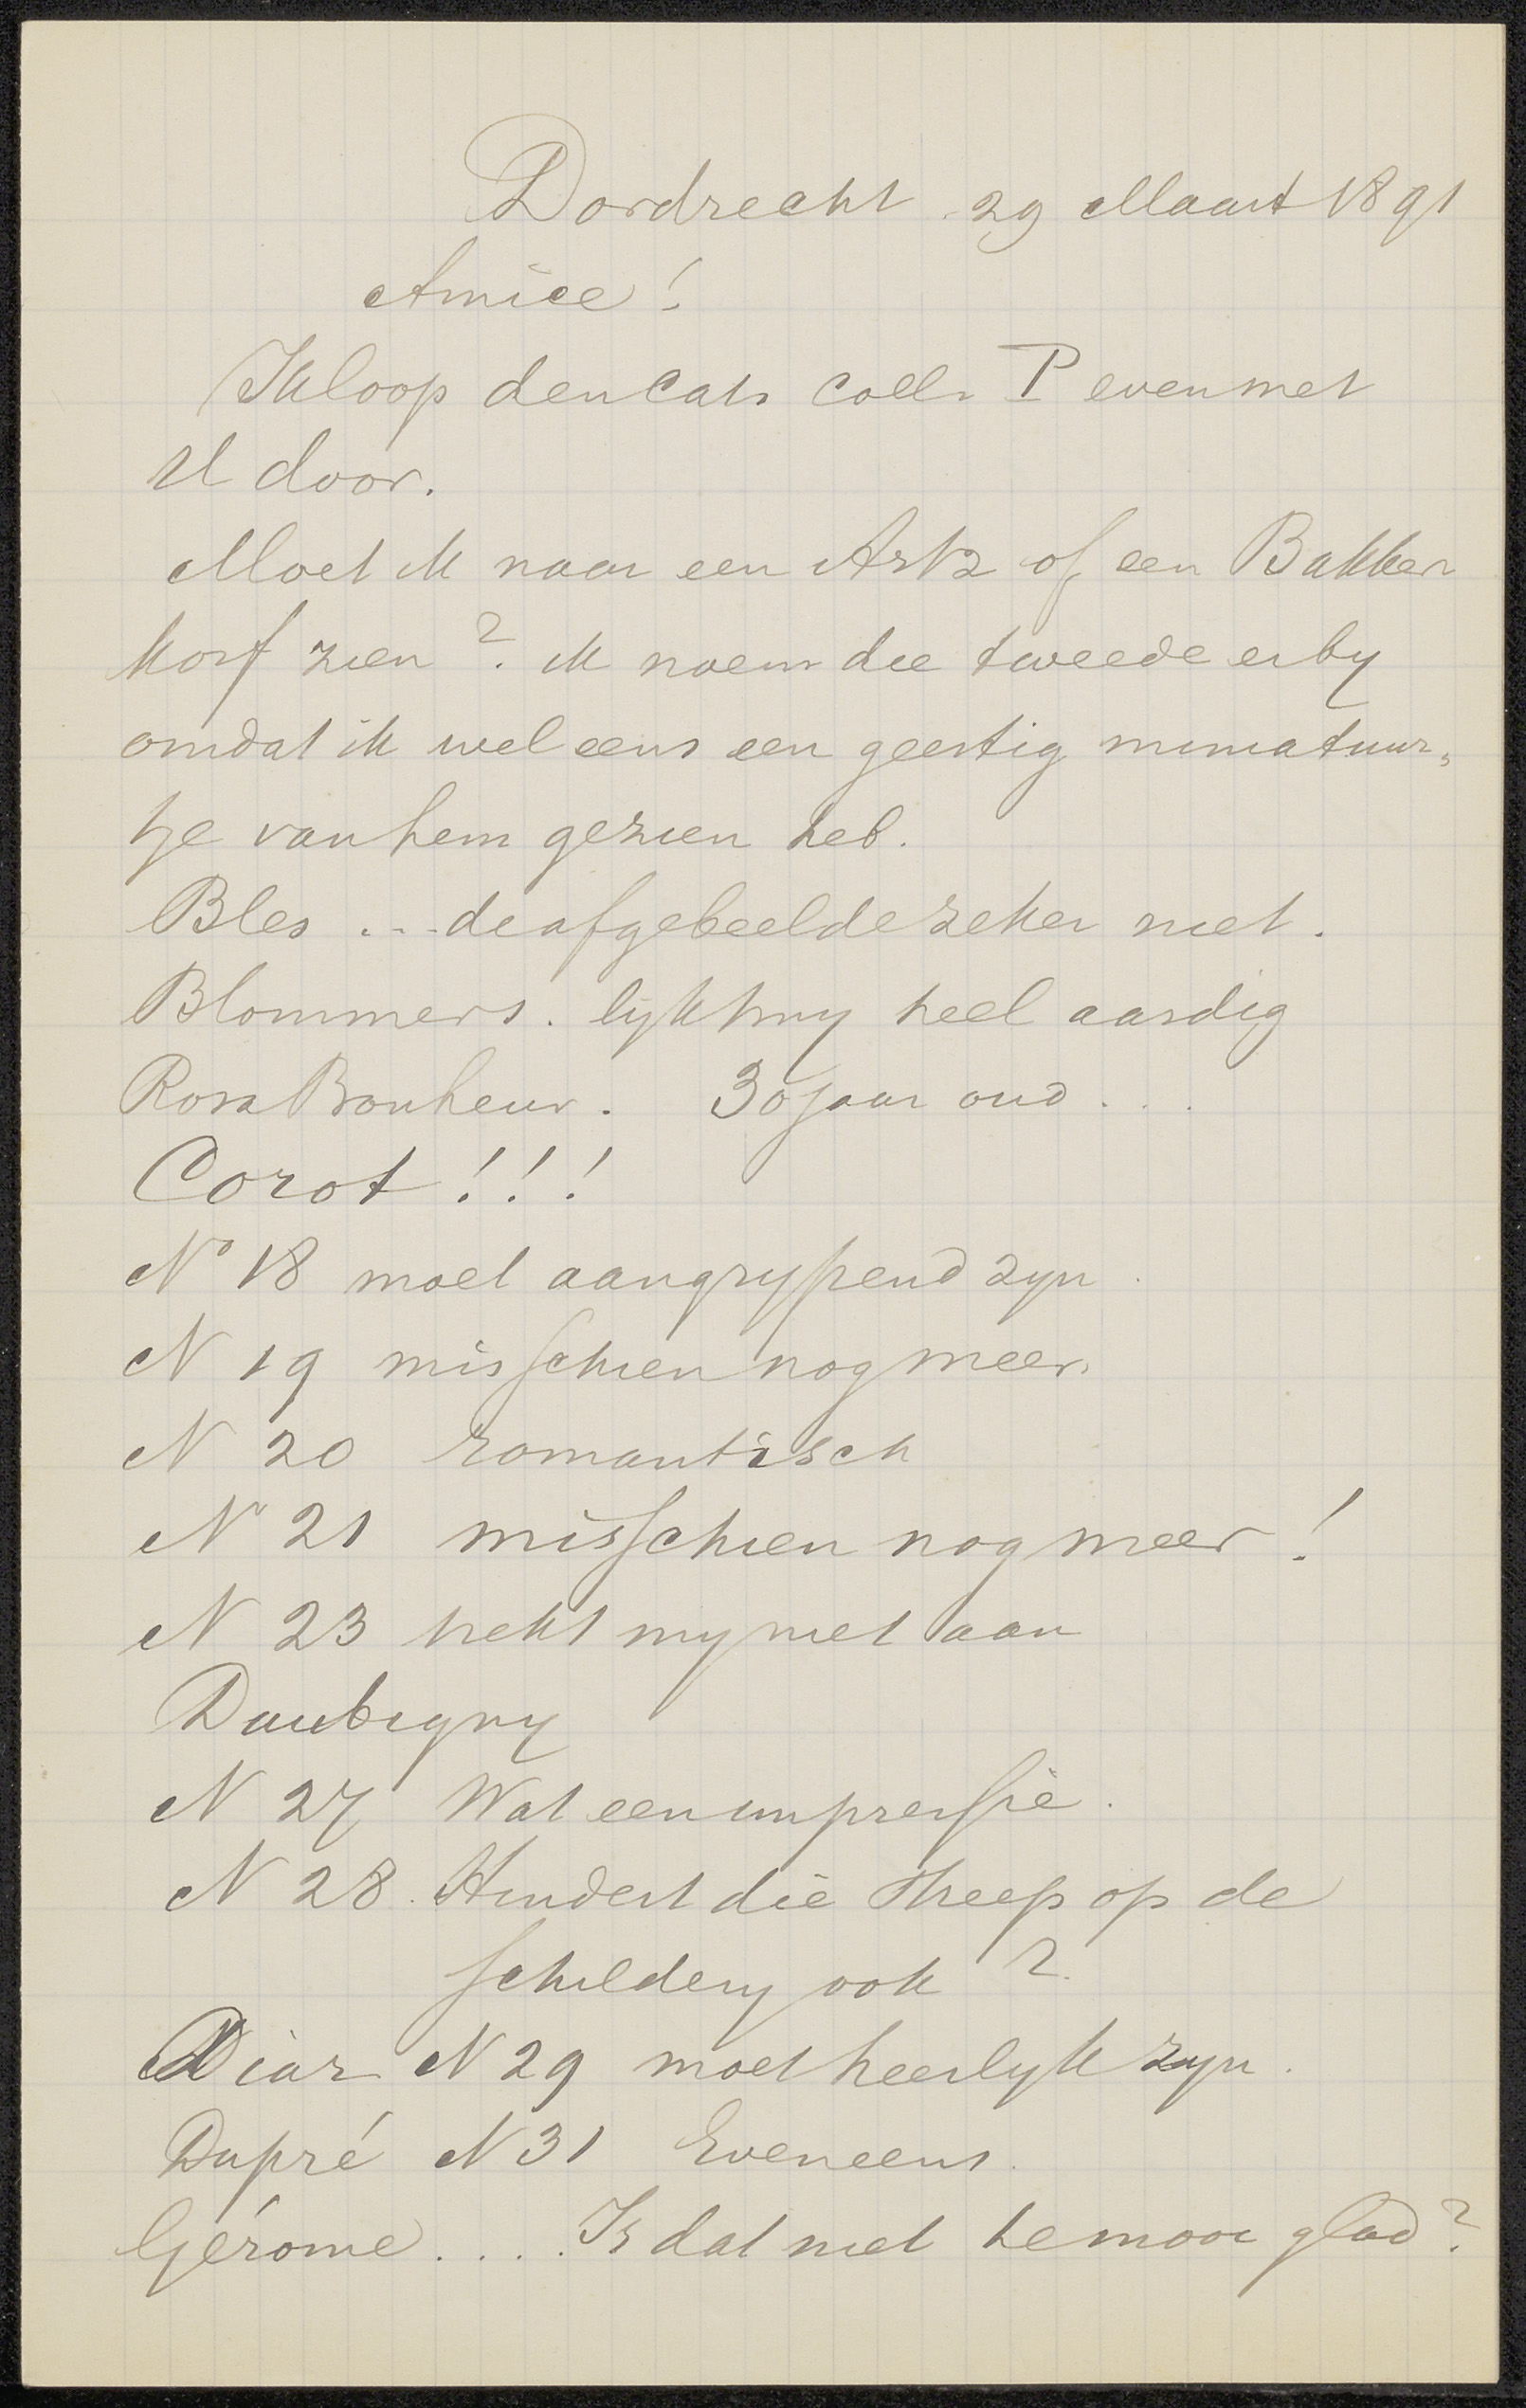 Dordrecht 29 Maart 1891
Amice!
Ik loop den Cat. Coll. P even met
U door.
Moet ik naar een Artz of een Bakker
Korf zien? ik noem die tweede erby
omdat ik wel eens een geestig miniatuur„
tje van hem gezien heb.
Bles ... de afgebeelde zeker niet.
Blommers. lijkt my heel aardig
Rosa Bonheur. 30 jaar oud...
Corot!!!
No 18 moet aangrypend zyn.
N 19 misschien nog meer.
N 20 romantisch
N 21 misschien nog meer!
N 23 trekt my niet aan
Daubigny
N 27 Wat een impressie.
N 28. Hindert die streep op de
schildery ook?
Diaz N 29 moet heerlyk zyn.
Dupré N 31 Eveneens.
Gérome..... Is dat niet te mooi glad?